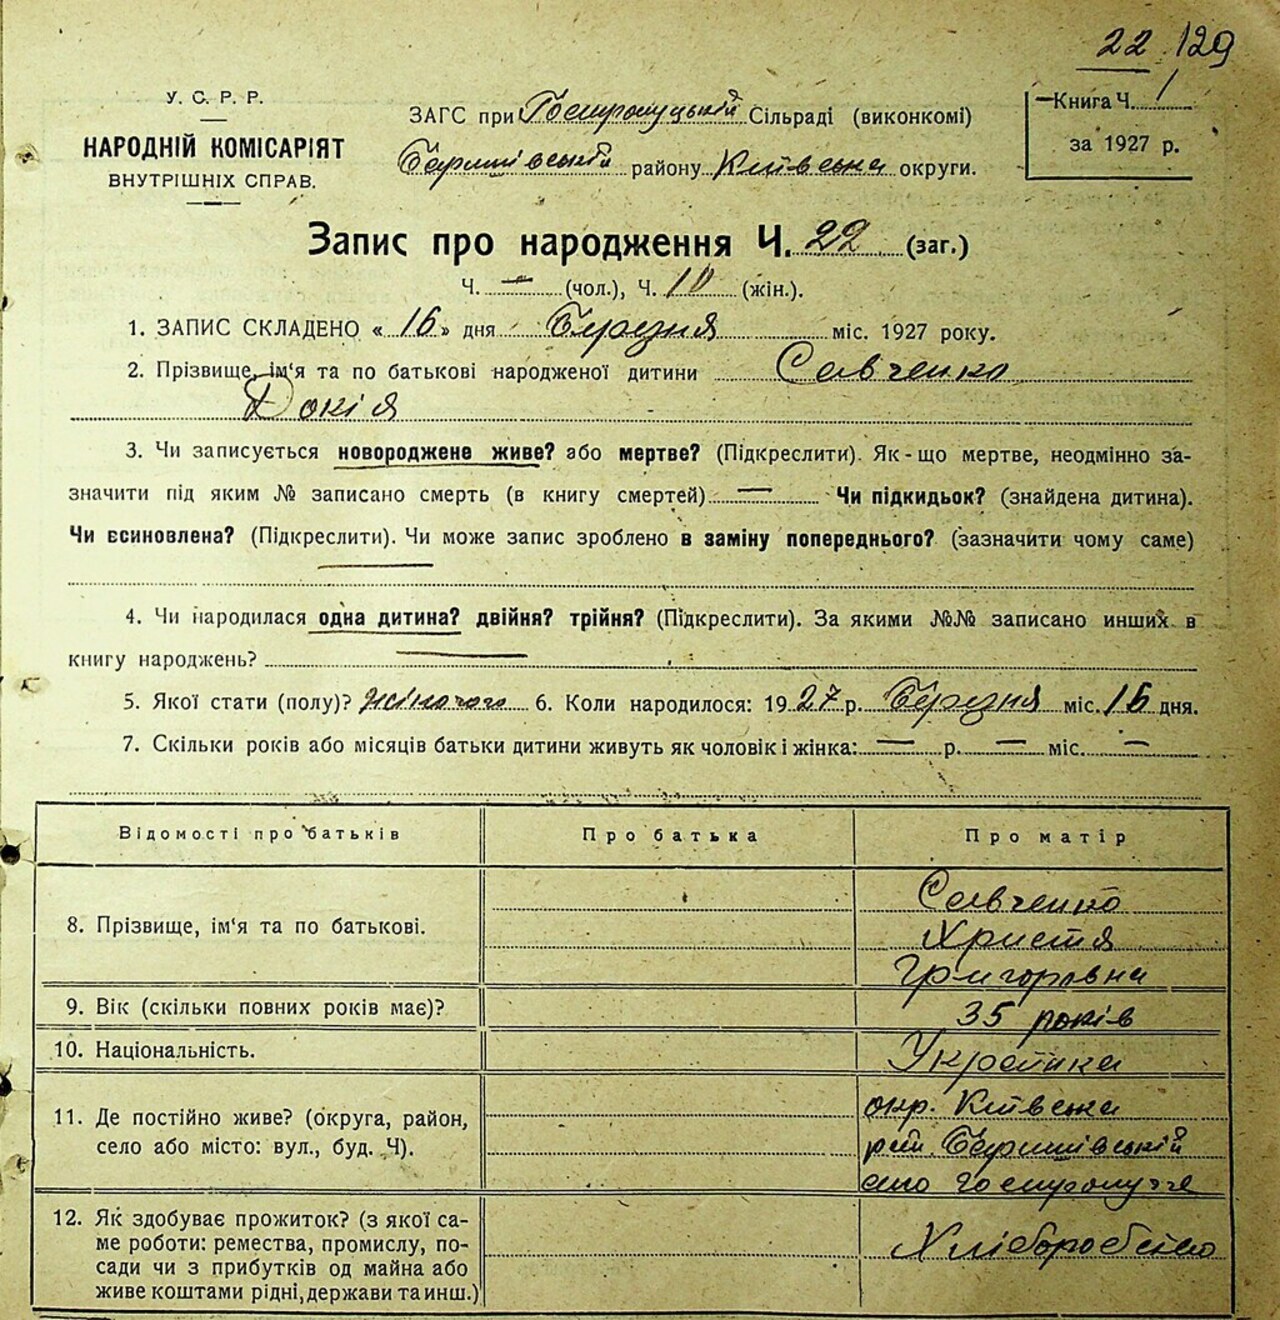 22 129
У. С. Р. Р.
НАРОДНІЙ КОМІСАРІЯТ
ВНУТРІШНІХ СПРАВ.
ЗАГС при Гостролуцькій Сільраді (виконкомі)
Баришівський району Київська округи.
Книга Ч. 1
за 1927 р.
Запис про народження Ч. 22 (заг.)
Ч. — (чол.), Ч. 10 (жін.).
1. ЗАПИС СКЛАДЕНО « 16 » дня Березня міс. 1927 року.
2. Прізвище, ім'я та по батькові народженої дитини Савченко
Докія
3. Чи записується новороджене живе? або мертве? (Підкреслити). Як-що мертве, неодмінно за-
значити під яким № записано смерть (в книгу смертей) — Чи підкидьок? (знайдена дитина).
Чи всиновлена? (Підкреслити). Чи може запис зроблено в заміну попереднього? (зазначити чому саме)
4. Чи народилася одна дитина? двійня? трійня? (Підкреслити). За якими №№ записано инших в
книгу народжень? —
5. Якої стати (полу)? жіночого 6. Коли народилося: 1927 р. Березня міс. 16 дня.
7. Скільки років або місяців батьки дитини живуть як чоловік і жінка: — р. — міс. —
Відомості про батьків Про батька Про матір
8. Прізвище, ім'я та по батькові.
Савченко
Христя
Григоровна
9. Вік (скільки повних років має)? 35 років
10. Національність. Украінка
11. Де постійно живе? (округа, район,
село або місто: вул., буд. Ч).
окр. Київська
рай. Баришівський
село Гостролуччє
12. Як здобуває прожиток? (з якої са-
ме роботи: ремества, промислу, по-
сади чи з прибутків од майна або
живе коштами рідні, держави та инш.)
Хліборобство